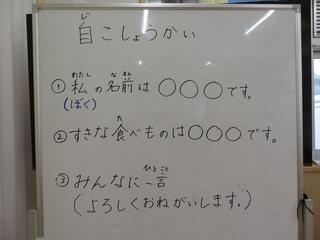 じ
自こしょうかい
わたし なまえ
①私の名前は〇〇〇です。
(ぼく)
た
②すきな食べものは〇〇〇です。
ひとこと
③みんなに一言
(よろしくおねがいします。)